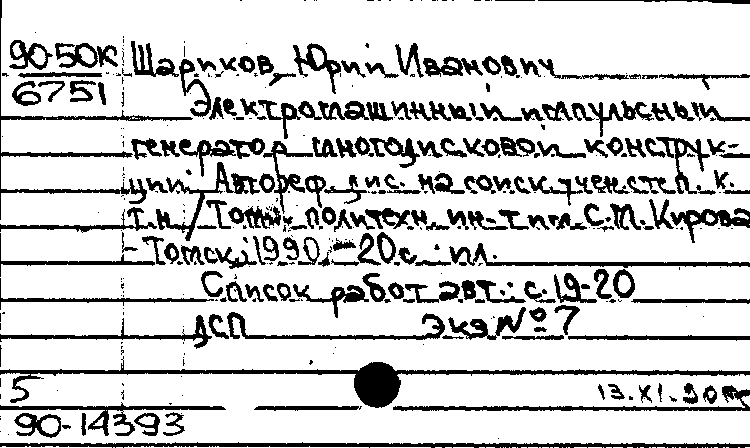 90-50К Шариков, Юрий Иванович
6751 Электромашинный импульсный
генератор многодисковой конструк-
ции: Автореф. дис. на соиск. учен. степ. к.
т.н. / Томск. политехн. ин-т им. С.М. Кирова
- Томск, 1990. - 20 с.: ил.
Список работ авт.: с. 19-20
ДСП Экз № 7
5 13.XI.90
90-14393